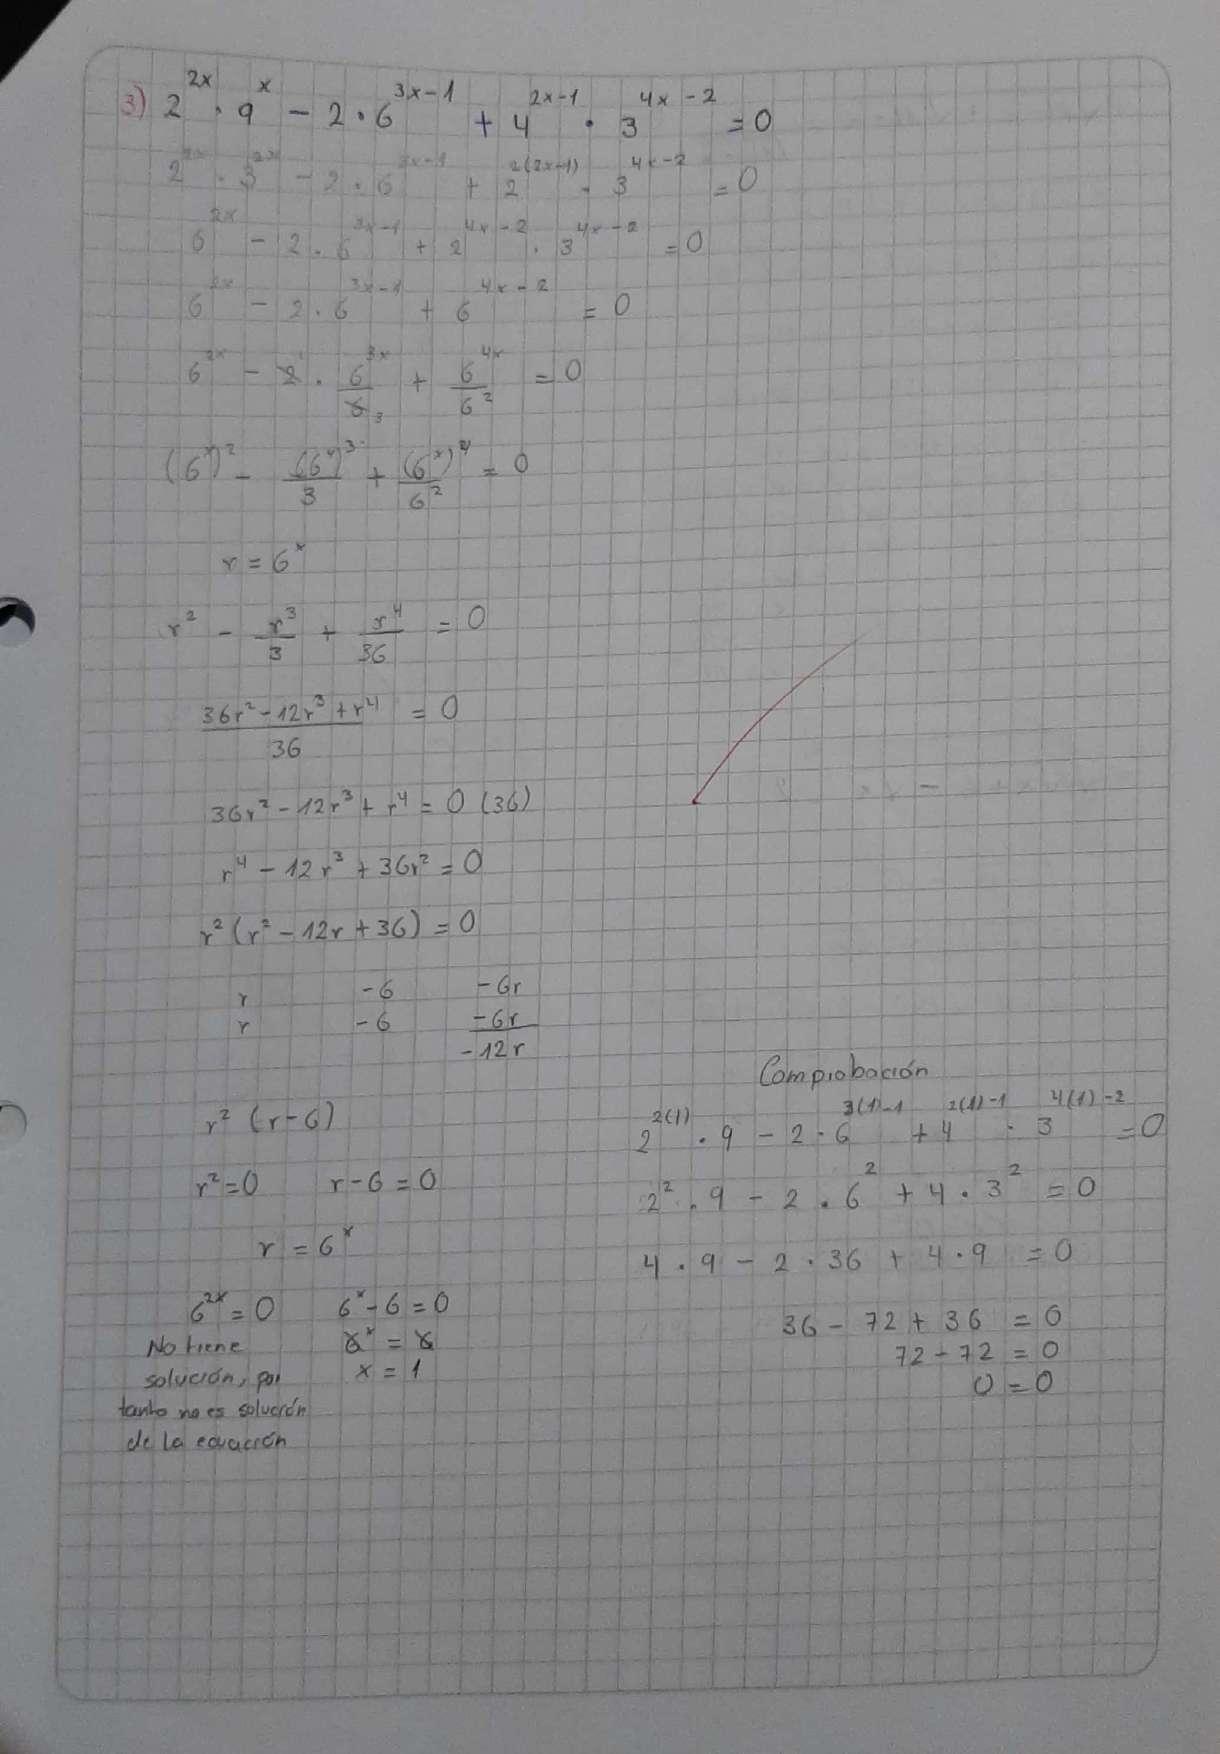 3) 2^{2x} · 9^{x} - 2 · 6^{3x-1} + 4^{2x-1} · 3^{4x-2} = 0
2^{2x} · 3^{2x} - 2 · 6^{3x-1} + 2^{2(2x-1)} · 3^{4x-2} = 0
6^{2x} - 2 · 6^{3x-1} + 2^{4x-2} · 3^{4x-2} = 0
6^{2x} - 2 · 6^{3x-1} + 6^{4x-2} = 0
6^{2x} - 2^{1} · 6^{3x}/6_{3} + 6^{4x}/6^{2} = 0
(6^{x})^{2} - (6^{x})^{3}/3 + (6^{x})^{4}/6^{2} = 0
r = 6^{x}
r^{2} - r^{3}/3 + r^{4}/36 = 0
36r^{2} - 12r^{3} + r^{4} = 0
36
36r^{2} - 12r^{3} + r^{4} = 0 (36)
r^{4} - 12r^{3} + 36r^{2} = 0
r^{2} (r^{2} - 12r + 36) = 0
r -6 -6r
r -6 -6r
-12r
r^{2} (r-6)
r^{2} = 0 r - 6 = 0
r = 6^{x}
6^{2x} = 0 6^{x} - 6 = 0
No tiene 6^{x} = 6
solución, por x = 1
tanto no es solución
de la ecuación
Comprobación
2^{2(1)} · 9 - 2 · 6^{3(1)-1} + 4^{2(1)-1} · 3^{4(1)-2} = 0
2^{2} · 9 - 2 · 6^{2} + 4 · 3^{2} = 0
4 · 9 - 2 · 36 + 4 · 9 = 0
36 - 72 + 36 = 0
72 - 72 = 0
0 = 0